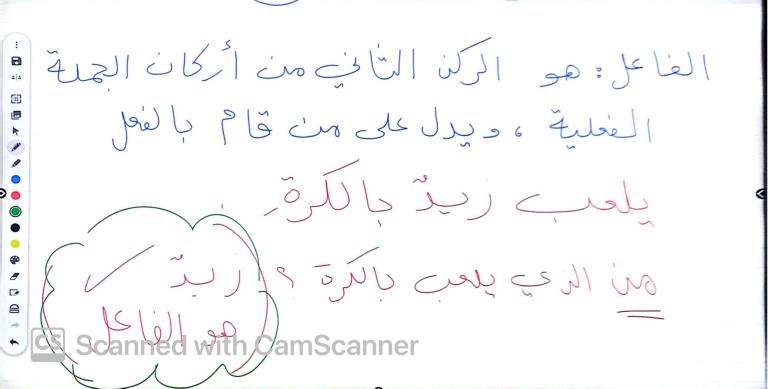 الفاعل: هو الركن الثاني من أركان الجملة
الفعلية، ويدل على من قام بالفعل
يلعب زيدٌ بالكرةِ.
من الذي يلعب بالكرة؟ زيدٌ
هو الفاعل
CS Scanned with CamScanner